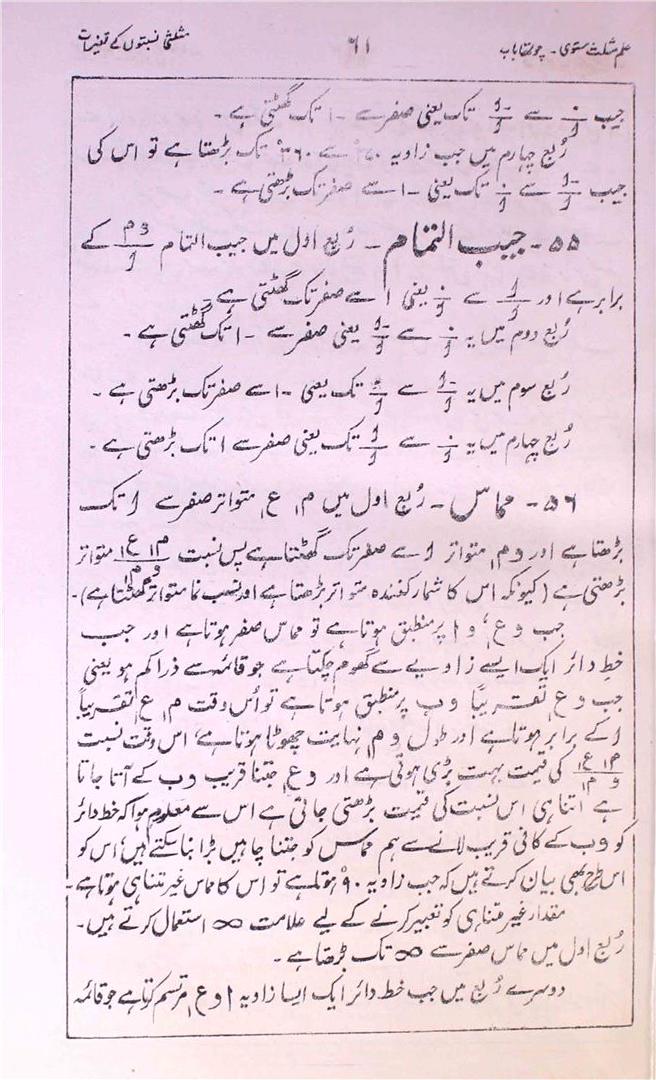 علم مثلث مستوی - چوتھا باب ۶۱ مثلثی نسبتوں کے تغیرات
جیب ۰/۱ سے -۱/۱ تک یعنی صفر سے -۱ تک گھٹتی ہے -
رُبع چہارم میں جب زاویہ ۲۷۰° سے ۳۶۰° تک بڑھتا ہے تو اس کی
جیب -۱/۱ سے ۰/۱ تک یعنی -۱ سے صفر تک بڑھتی ہے -
۵۵ - جیب التمام - رُبع اول میں جیب التمام وم/۱ کے
برابر ہے اور ۱/۱ سے ۰/۱ یعنی ۱ سے صفر تک گھٹتی ہے -
رُبع دوم میں یہ ۰/۱ سے -۱/۱ یعنی صفر سے -۱ تک گھٹتی ہے -
رُبع سوم میں یہ -۱/۱ سے ۰/۱ تک یعنی -۱ سے صفر تک بڑھتی ہے -
رُبع چہارم میں یہ ۰/۱ سے ۱/۱ تک یعنی صفر سے ۱ تک بڑھتی ہے -
۵۶ - مماس - رُبع اول میں م۱ ع۱ متواتر صفر سے ۱ تک
بڑھتا ہے اور و م۱ متواتر ۱ سے صفر تک گھٹتا ہے پس نسبت م۱ع۱/وم۱ متواتر
بڑھتی ہے (کیونکہ اس کا شمار کنندہ متواتر بڑھتا ہے اور نسب نما متواتر گھٹتا ہے) -
جب و ع۱، و ا پر منطبق ہوتا ہے تو مماس صفر ہوتا ہے اور جب
خط دائر ایک ایسے زاویے سے گھوم چکتا ہے جو قائمہ سے ذرا کم ہو یعنی
جب و ع۱ تقریباً و ب پر منطبق ہوتا ہے تو اُس وقت م۱ ع۱ تقریباً
۱ کے برابر ہوتا ہے اور طول و م۱ نہایت چھوٹا ہوتا ہے، اس وقت نسبت
م۱ع۱/وم۱ کی قیمت بہت بڑی ہوتی ہے اور و ع۱ جتنا قریب و ب کے آتا جاتا
ہے اتنا ہی اس نسبت کی قیمت بڑھتی جاتی ہے اس سے معلوم ہوا کہ خط دائر
کو و ب کے کافی قریب لانے سے ہم مماس کو جتنا چاہیں بڑا بنا سکتے ہیں، اس کو
اس طرح بھی بیان کرتے ہیں کہ جب زاویہ ۹۰° ہوتا ہے تو اس کا مماس غیر متناہی ہوتا ہے -
مقدار غیر متناہی کو تعبیر کرنے کے لیے علامت ∞ استعمال کرتے ہیں -
رُبع اول میں مماس صفر سے ∞ تک بڑھتا ہے -
دوسرے رُبع میں جب خط دائر ایک ایسا زاویہ ا و ع۱ مرتسم کرتا ہے جو قائمہ